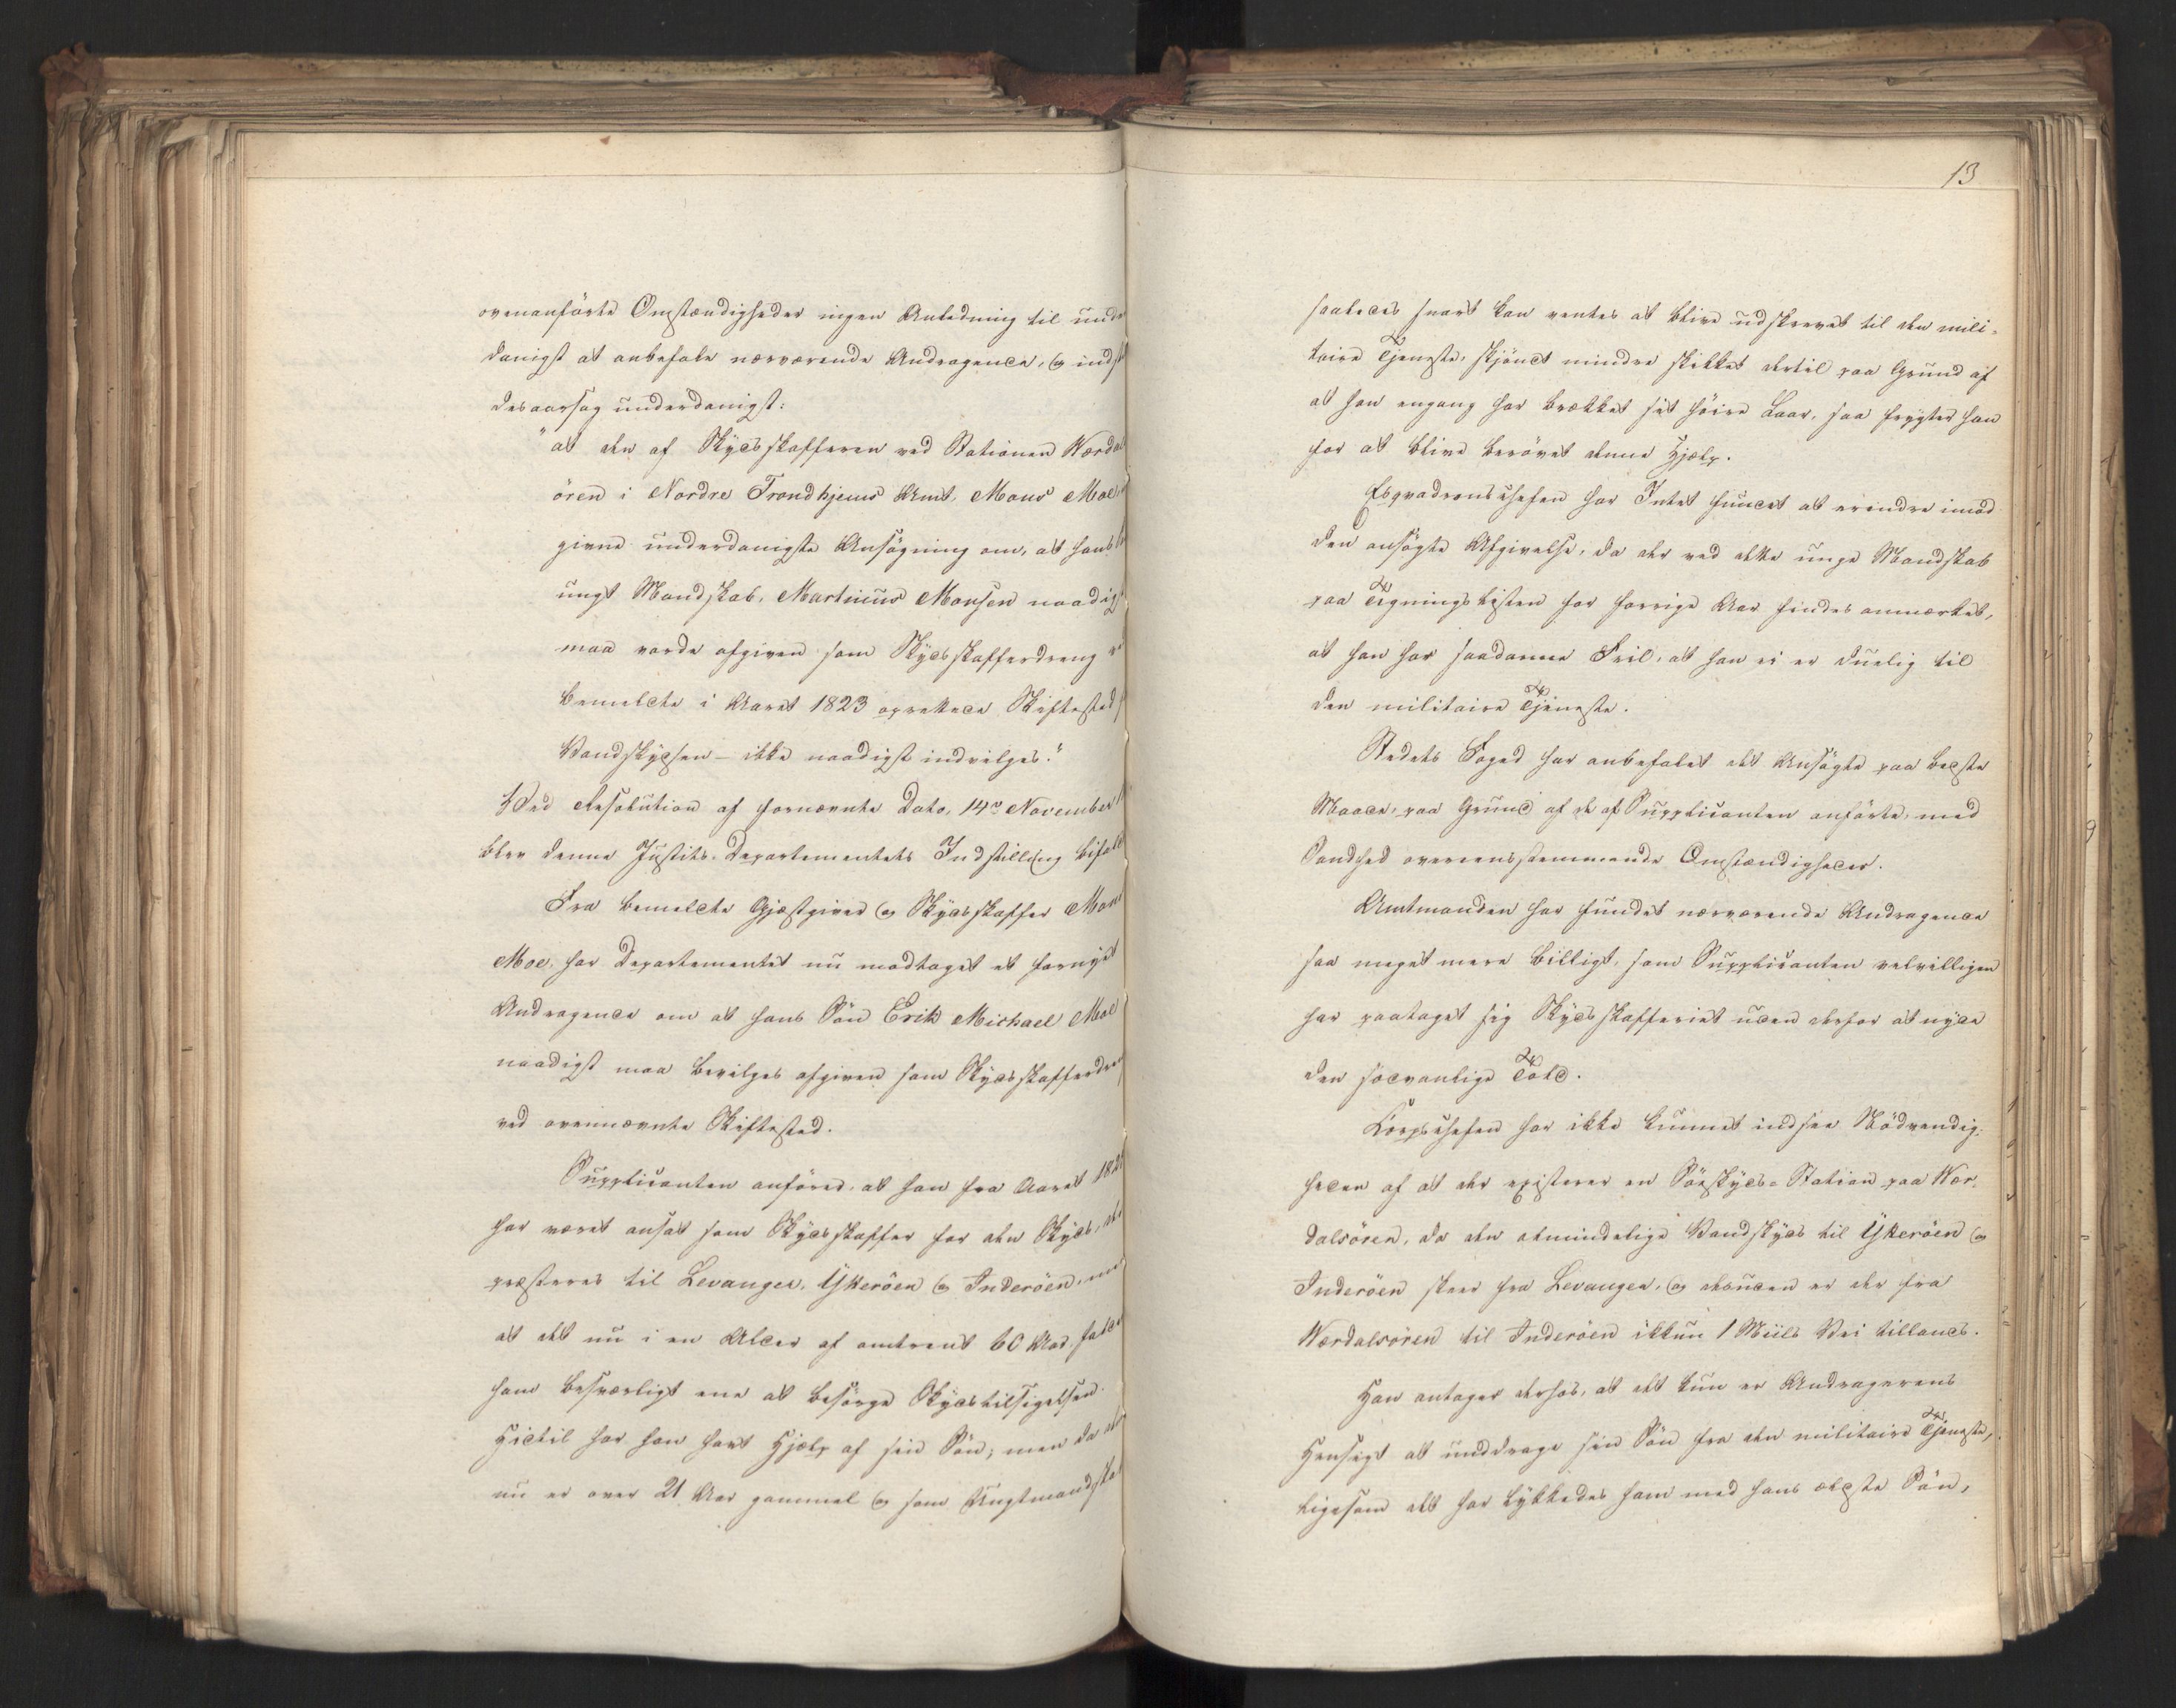 ovenanförte Omstændigheder ingen Anledning til under
danigst at anbefale nærværende Andragende, og indst
desaarsag underdanigst:
"at den af Skydsskafferen ved Stationen Værdal
ören i Nordre Trondhjems Amt, Mons Moe,
givne underdanigste Ansøgning om, at hans
ungt Mandskab, Martinus Monsen naadigst
maa vorde afgiven som Skydsskafferdreng ve
bemeldte i Aaret 1823 oprettede Skiftested f
Vandskydsen - ikke naadigst indvilges."
Ved Resolution af fornævnte Dato, 14de November
blev denne Justits-Departementets Indstilling bifaldt
Fra bemeldte Gjæstgiver og Skydsskaffer Mons
Moe, har Departementet nu modtaget et fornyet
Andragende om at hans Sön Erik Michael Moe
naadigst maa bevilges afgiven som Skydsskafferdren
ved ovennævnte Skiftested.
Supplicanten anförer, at han fra Aaret 182
har været ansat som Skydsskaffer for den Skyds, der
præsteres til Levanger, Ytteröen og Inderöen, me
at det nu i en Alder af omtrent 60 Aar, falder
ham besværligt ene at besörge Skydstilsigelsen.
Hidtil har han havt Hjælp af sin Sön; men da de
nu er over 21 Aar gammel og som Ungtmandskab
13
saaledes snart kan ventes at blive udskrevet til den mili-
taire Tjeneste, skjöndt mindre skikket dertil paa Grund af
at han engang har brækket sit höire Laar, saa frygter han
for at blive berövet denne Hjælp.
Esqvadronschefen har Intet fundet at erindre imod
den ansögte Afgivelse, da der ved dette unge Mandskab
paa Tegningslisten for forrige Aar findes anmærket,
at han har saadanne Feil, at han ei er duelig til
den militaire Tjeneste.
Stedets Foged har anbefalet det Ansögte paa bedste
Maade, paa Grund af de af Supplicanten anförte, med
Sandhed overeensstemmende Omstændigheder.
Amtmanden har fundet nærværende Andragende
saa meget mere billigt, som Supplicanten velvilligen
har paataget sig Skydsskafferiet uden derfor at nyde
den sædvanlige Told.
Corpschefen har ikke kunnet indsee Nödvendig-
heden af at der existerer en Söeskyds-Station paa Vær-
dalsören, da den almindelige Vandskyds til Ytteröen og
Inderöen skeer fra Levanger, og desuden er der fra
Værdalsören til Inderöen ikkun 1 Miils Vei tillands.
Han antager derhos, at det kun er Andragerens
Hensigt at unddrage sin Sön fra den militaire Tjeneste,
ligesom det har lykkedes ham med hans ældste Sön,